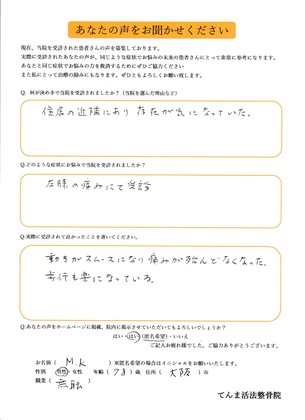 あなたの声をお聞かせください
現在、当院を受診された患者さんの声を募集しております。
実際に受診されたあなたの声が、同じような症状でお悩みの未来の患者さんにとって非常に参考になります。
あなたと同じ症状でお悩みの方を救済するためにぜひご協力ください
また私にとって治療の励みにもなります。ぜひともよろしくお願い致します。
Q. 何が決め手で当院を受診されましたか?(当院を選んだ理由など)
住居の近隣にあり 存在が気になっていた.
Q.どのような症状にお悩みで当院を受診されましたか?
左膝の痛みにて受診
Q.実際に受診されて良かったことを書いてください。
動きがスムースになり痛みが殆んどなくなった.
歩行も楽になっている.
Q.あなたの声をホームページに掲載、院内に掲示させていただいてもよろしいでしょうか?
はい・はい(匿名希望)・いいえ
ご記入お疲れ様でした。ご協力ありがとうございます。
お名前( M.K )※匿名希望の場合はイニシャルをお願いいたします。
性別 男性・女性 年齢(73)歳 住所(大阪)市
職業(無職)
てんま活法整骨院